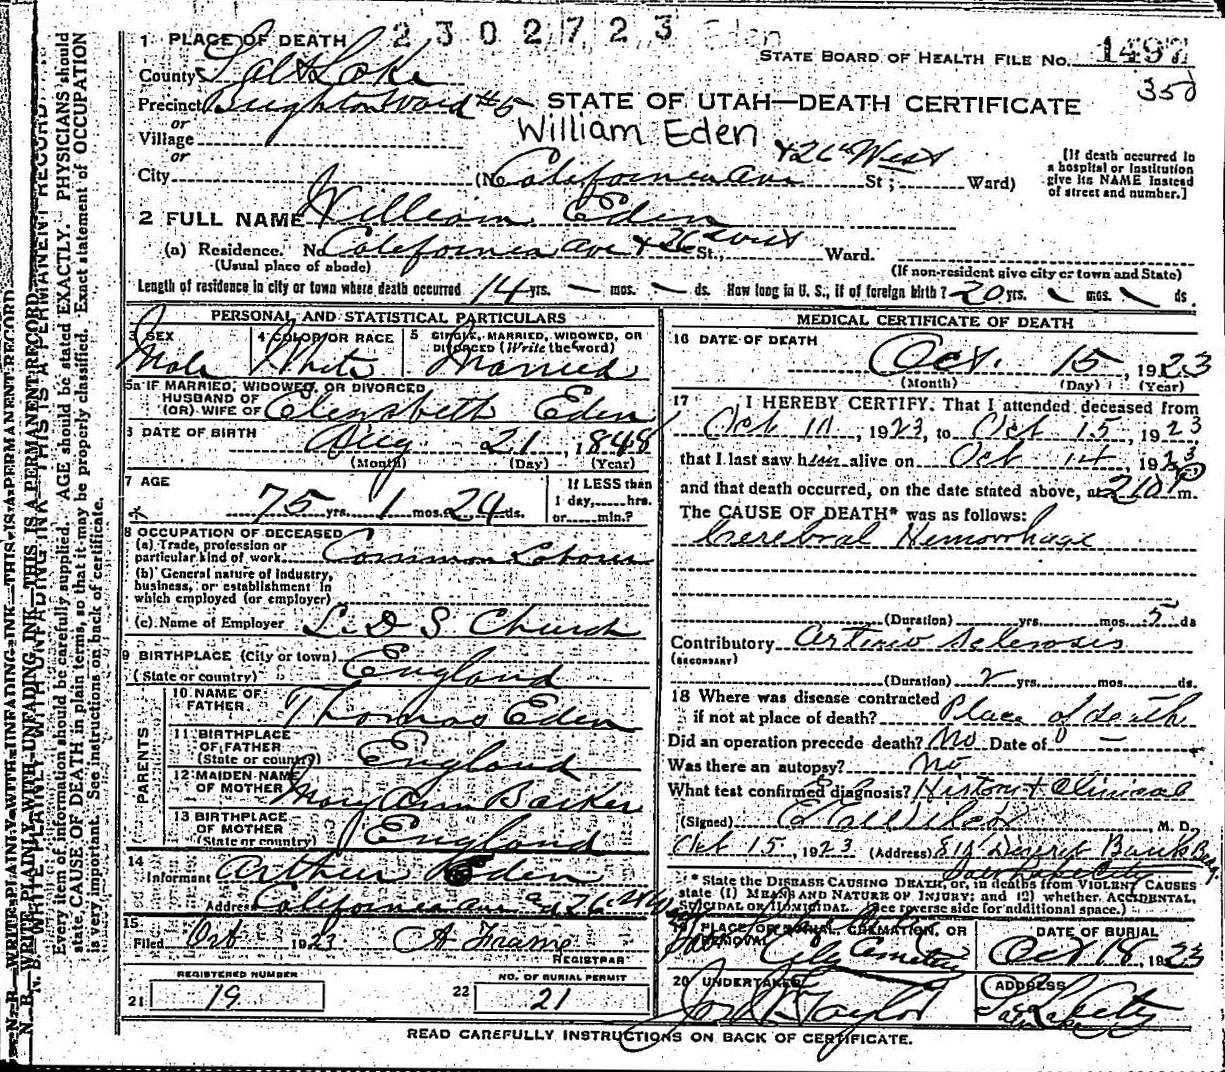 2302723 Eden
1 PLACE OF DEATH
STATE BOARD OF HEALTH FILE NO. 1497
350
County Salt Lake
Precinct Brighton Ward #5
STATE OF UTAH—DEATH CERTIFICATE
or
William Eden
Village
or
City (No California Ave & 26th West St; Ward)
[If death occurred in a hospital or institution give its NAME instead of street and number.]
2 FULL NAME William Eden
(a) Residence. No California Ave & 26 West St., Ward.
(Usual place of abode)
(If non-resident give city or town and State)
Length of residence in city or town where death occurred 14 yrs. — mos. — ds. How long in U. S., if of foreign birth? 20 yrs. mos. ds.
PERSONAL AND STATISTICAL PARTICULARS
3 SEX Male
4 COLOR OR RACE White
5 SINGLE, MARRIED, WIDOWED, OR DIVORCED (Write the word) Married
5a IF MARRIED, WIDOWED, OR DIVORCED
HUSBAND OF
(OR) WIFE OF Elizabeth Eden
DATE OF BIRTH Aug 21, 1848
(Month) (Day) (Year)
7 AGE 75 yrs. 1 mos. 24 ds.
If LESS than
1 day, hrs.
or min.?
8 OCCUPATION OF DECEASED
(a) Trade, profession or
particular kind of work Common Laborer
(b) General nature of industry,
business, or establishment in
which employed (or employer)
(c) Name of Employer L. D S Church
9 BIRTHPLACE (City or town)
(State or country) England
PARENTS
10 NAME OF
FATHER Thomas Eden
11 BIRTHPLACE
OF FATHER
(State or country) England
12 MAIDEN NAME
OF MOTHER Mary Ann Barker
13 BIRTHPLACE
OF MOTHER
(State or country) England
14
Informant Arthur Eden
Address California Ave and 26
15
Filed Oct 1923 A Frame
REGISTRAR
REGISTERED NUMBER
21 19
NO. OF BURIAL PERMIT
22 21
MEDICAL CERTIFICATE OF DEATH
16 DATE OF DEATH
Oct. 15, 1923
(Month) (Day) (Year)
17 I HEREBY CERTIFY, That I attended deceased from
Oct 10, 1923, to Oct 15, 1923
that I last saw him alive on Oct 14, 1923
and that death occurred, on the date stated above, at 210 P m.
The CAUSE OF DEATH* was as follows:
Cerebral Hemorrhage
(Duration) yrs. mos. 5 ds
Contributory Arterio Sclerosis
(SECONDARY)
(Duration) 2 yrs. mos. ds.
18 Where was disease contracted
if not at place of death? Place of death
Did an operation precede death? No Date of —
Was there an autopsy? no
What test confirmed diagnosis? History & Clinical
(Signed) E E Wilcox M. D.
Oct 15, 1923 (Address) Deseret Bank Bldg.
Salt Lake City
* State the DISEASE CAUSING DEATH, or, in deaths from VIOLENT CAUSES
state (1) MEANS AND NATURE OF INJURY; and (2) whether ACCIDENTAL,
SUICIDAL OR HOMICIDAL. (See reverse side for additional space.)
19 PLACE OF BURIAL, CREMATION, OR
REMOVAL City Cemetery
DATE OF BURIAL
Oct 18, 1923
20 UNDERTAKER
Jos. Wm Taylor
ADDRESS
Salt Lake City
READ CAREFULLY INSTRUCTIONS ON BACK OF CERTIFICATE.
N. B.—WRITE PLAINLY WITH UNFADING INK—THIS IS A PERMANENT RECORD.
Every item of information should be carefully supplied. AGE should be stated EXACTLY. PHYSICIANS should
state CAUSE OF DEATH in plain terms, so that it may be properly classified. Exact statement of OCCUPATION
is very important. See instructions on back of certificate.